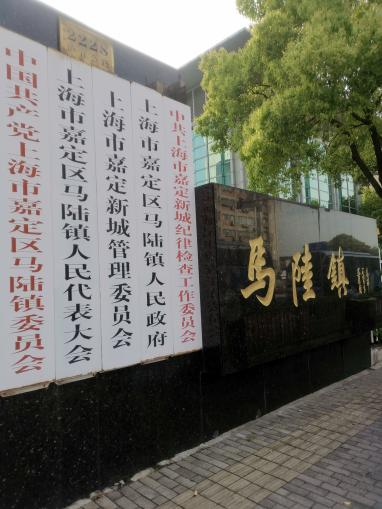 2228
中国共产党上海市嘉定区马陆镇委员会
上海市嘉定区马陆镇人民代表大会
上海市嘉定新城管理委员会
上海市嘉定区马陆镇人民政府
中共上海市嘉定新城纪律检查工作委员会
马陆镇